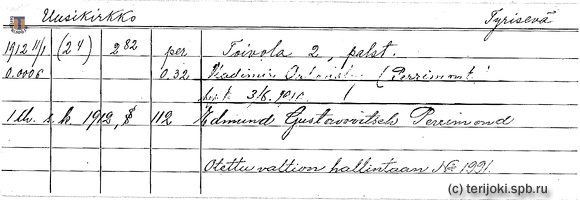 Uusikirkko Tyrisevä
1912 11/1 (24) 2 82 per Toivola 2, palst.
0.0006 0.32 Vladimir (Perrimont
3/8. 1910.
s. k. 1912, § 112 Edmund Gustavovitsch Perrimond
Otettu valtion hallintaan № 1991.
(c) terijoki.spb.ru